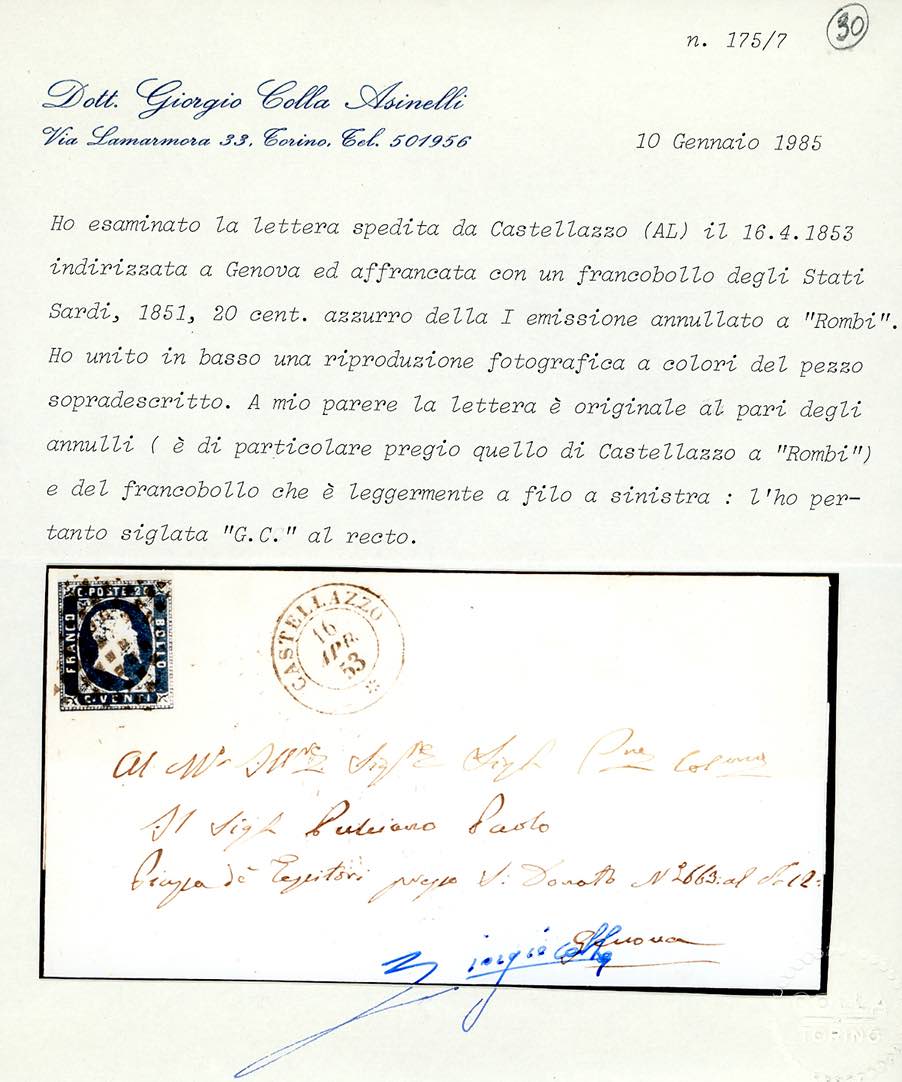 n. 175/7
30
Dott. Giorgio Colla Asinelli
Via Lamarmora 33, Torino, Tel. 501956
10 Gennaio 1985
Ho esaminato la lettera spedita da Castellazzo (AL) il 16.4.1853
indirizzata a Genova ed affrancata con un francobollo degli Stati
Sardi, 1851, 20 cent. azzurro della I emissione annullato a "Rombi".
Ho unito in basso una riproduzione fotografica a colori del pezzo
sopradescritto. A mio parere la lettera è originale al pari degli
annulli ( è di particolare pregio quello di Castellazzo a "Rombi")
e del francobollo che è leggermente a filo a sinistra : l'ho per-
tanto siglata "G.C." al recto.
C. POSTE 20
FRANCO
BOLLO
C. VENTI
CASTELLAZZO
16
APR.
53
Al
Il Sigr Paolo
Piazza
Donatto Nº 663 al
Genova
Giorgio Colla
TORINO